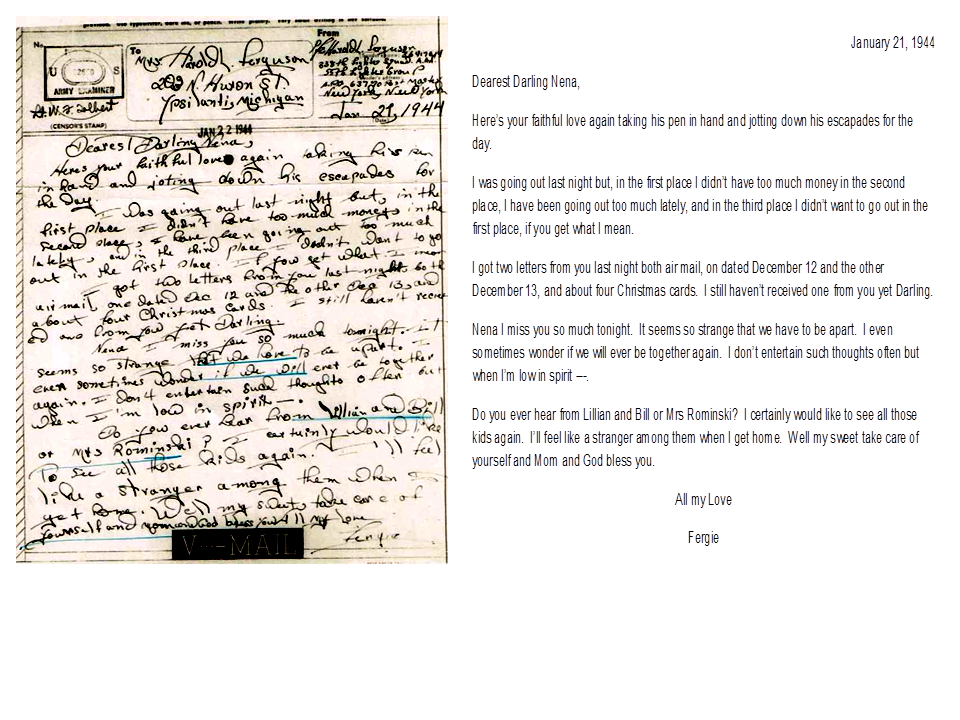 No.
U S
ARMY EXAMINER
(CENSOR'S STAMP)
To
Mrs Harold Ferguson
209 N. Huron ST.
Ypsilanti, Michigan
From
New York, New York
Jan 21, 1944
JAN 22 1944
Dearest Darling Nena,
Heres your faithful love again taking his pen
in hand and joting down his escapades for
the day.
I was going out last night but, in the
first place I didn't have too much money in the
second place, I have been going out too much
lately, and in the third place I didn't want to go
out in the first place if you get what I mean
I got two letters from you last night both
air mail one dated Dec 12 and the other Dec 13 and
about four Christmas cards I still haven't receiv
ed one from you yet Darling.
Nena I miss you so much tonight. It
seems so strange that we have to be apart. I
even sometimes wonder if we will ever be together
again. I don't entertain such thoughts often but
when I'm low in spirit —.
Do you ever hear from Lillian and Bill
or Mrs Rominski? I certainly would like
to see all those kids again. I'll feel
like a stranger among them when I
get home. Well my sweet take care of
yourself and mom and God bless you All my love
Fergie
V···—MAIL
January 21, 1944
Dearest Darling Nena,
Here's your faithful love again taking his pen in hand and jotting down his escapades for the
day.
I was going out last night but, in the first place I didn't have too much money in the second
place, I have been going out too much lately, and in the third place I didn't want to go out in the
first place, if you get what I mean.
I got two letters from you last night both air mail, on dated December 12 and the other
December 13, and about four Christmas cards. I still haven't received one from you yet Darling.
Nena I miss you so much tonight. It seems so strange that we have to be apart. I even
sometimes wonder if we will ever be together again. I don't entertain such thoughts often but
when I'm low in spirit ---.
Do you ever hear from Lillian and Bill or Mrs Rominski? I certainly would like to see all those
kids again. I'll feel like a stranger among them when I get home. Well my sweet take care of
yourself and Mom and God bless you.
All my Love
Fergie